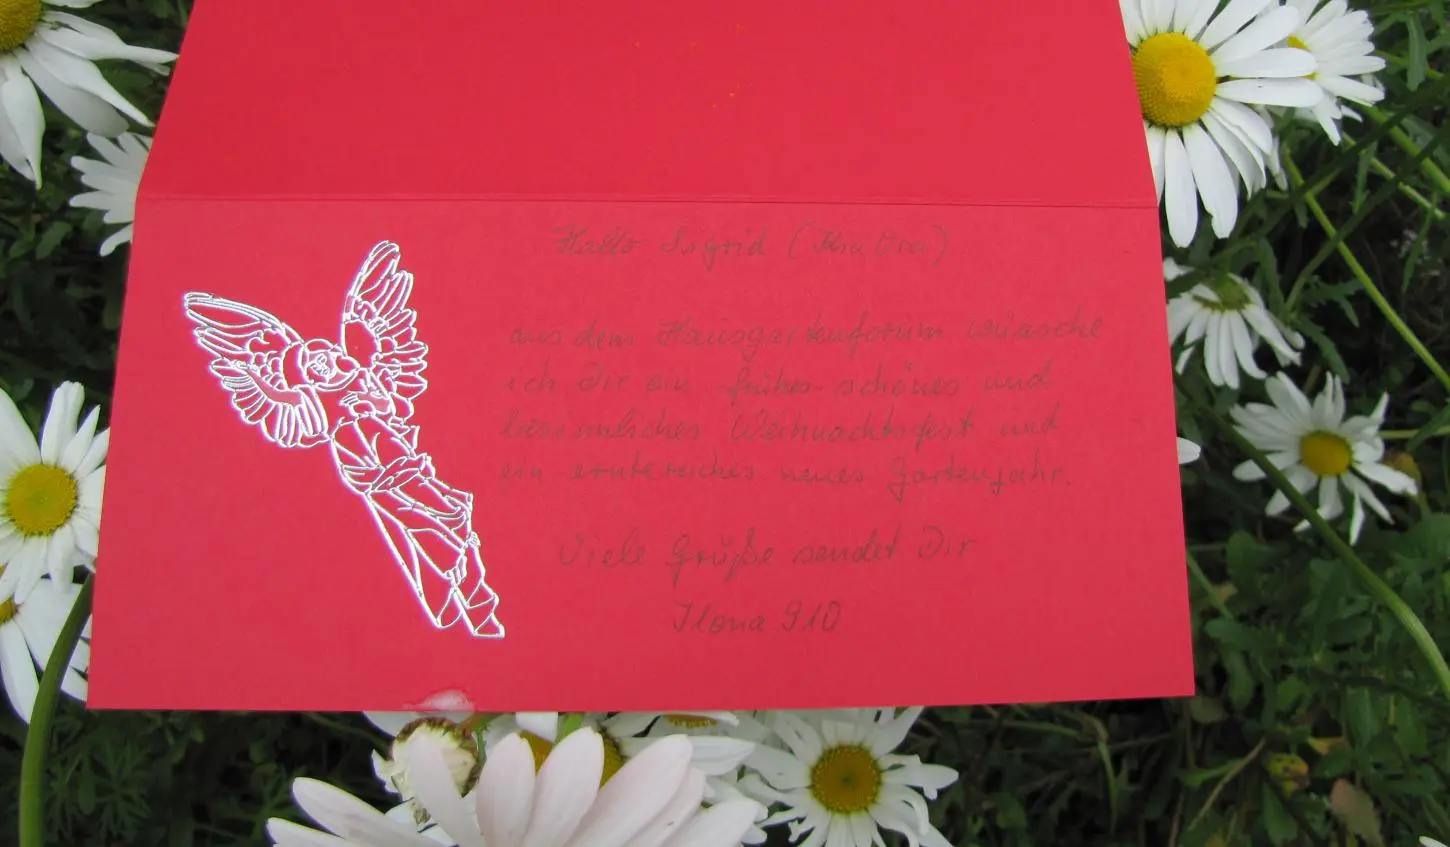 Hallo Sigrid
aus dem Hausgartenforum wünsche
ich Dir ein frohes schönes und
besinnliches Weihnachtsfest und
ein erntereiches neues Gartenjahr.
Viele Grüße sendet Dir
Ilona 910